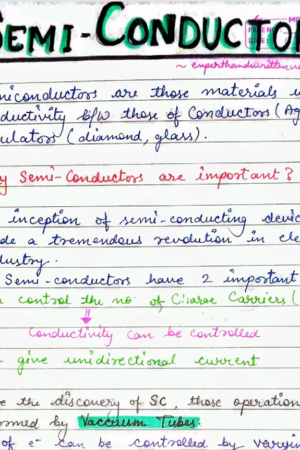 SEMI-CONDUCTOR
~ experthandwritten
miconductors are those materials w
ductivity b/w those of Conductors (Ag
ulators (diamond, glass).
y Semi-Conductors are important?
inception of semi-conducting devic
de a tremendous revolution in ele
dustry.
Semi-conductors have 2 important
n control the no of Charge Carriers (
⇓
Conductivity can be controlled
give unidirectional current
e the discovery of SC, those operation
ormed by Vaccuum Tubes.
of e⁻ can be controlled by varying